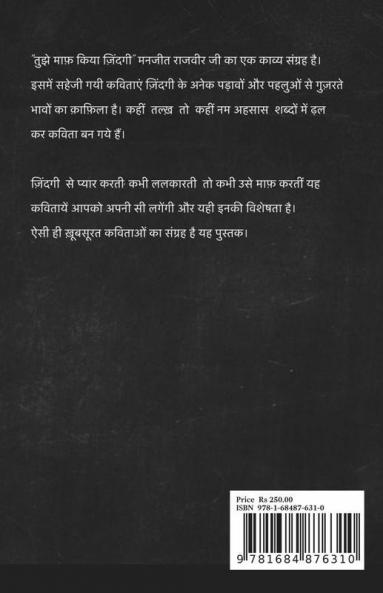 "तुझे माफ़ किया ज़िंदगी" मनजीत राजवीर जी का एक काव्य संग्रह है।
इसमें सहेजी गयी कविताएं ज़िंदगी के अनेक पड़ावों और पहलुओं से गुज़रते
भावों का क़ाफ़िला है। कहीं तल्ख़ तो कहीं नम अहसास शब्दों में ढ़ल
कर कविता बन गये हैं।
ज़िंदगी से प्यार करती कभी ललकारती तो कभी उसे माफ़ करतीं यह
कवितायें आपको अपनी सी लगेंगी और यही इनकी विशेषता है।
ऐसी ही ख़ूबसूरत कविताओं का संग्रह है यह पुस्तक।
Price Rs 250.00
ISBN 978-1-68487-631-0
9 781684 876310